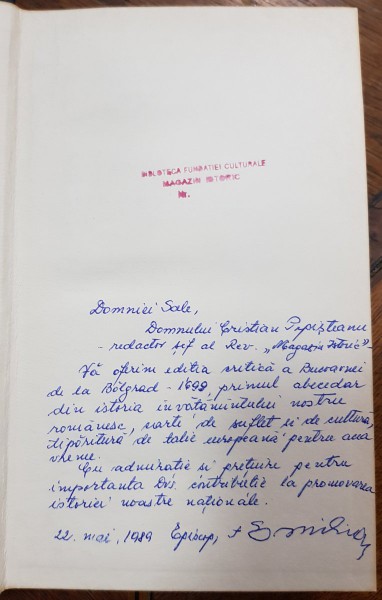 BIBLIOTECA FUNDAȚIEI CULTURALE
MAGAZIN ISTORIC
Nr.
Domniei Sale,
Domnului Cristian Popișteanu
- redactor șef al Rev. „Magazin Istoric”
Vă oferim ediția critică a Bucoavnei
de la Bălgrad - 1699, primul abecedar
din istoria învățămîntului nostru
românesc, carte de suflet și de cultură,
tipăritură de talie europeană pentru acea
vreme.
Cu admirație și prețuire pentru
importanta Dvs. contribuție la promovarea
istoriei noastre naționale.
22. mai, 1989 Episcop, + Emilian